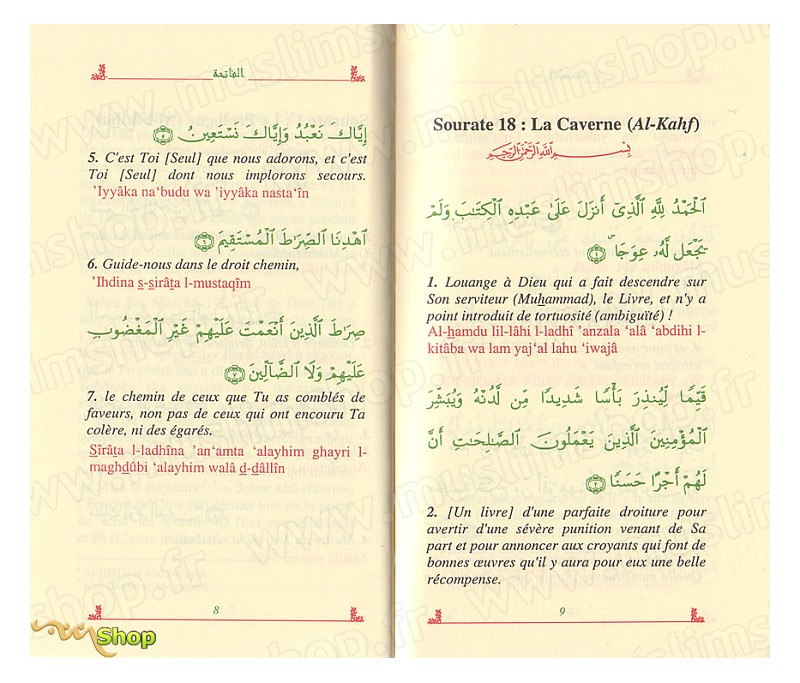 الفاتحة
إِيَّاكَ نَعْبُدُ وَإِيَّاكَ نَسْتَعِينُ ۝٥
5. C'est Toi [Seul] que nous adorons, et c'est
Toi [Seul] dont nous implorons secours.
’Iyyâka na‘budu wa ’iyyâka nasta‘în
ٱهْدِنَا ٱلصِّرَٰطَ ٱلْمُسْتَقِيمَ ۝٦
6. Guide-nous dans le droit chemin,
’Ihdina s-sirâta l-mustaqîm
صِرَٰطَ ٱلَّذِينَ أَنْعَمْتَ عَلَيْهِمْ غَيْرِ ٱلْمَغْضُوبِ
عَلَيْهِمْ وَلَا ٱلضَّآلِّينَ ۝٧
7. le chemin de ceux que Tu as comblés de
faveurs, non pas de ceux qui ont encouru Ta
colère, ni des égarés.
Sîrâta l-ladhîna ’an‘amta ‘alayhim ghayri l-
maghdûbi ‘alayhim walâ d-dâllîn
8
Sourate 18 : La Caverne (Al-Kahf)
بِسْمِ ٱللَّهِ ٱلرَّحْمَٰنِ ٱلرَّحِيمِ
ٱلْحَمْدُ لِلَّهِ ٱلَّذِىٓ أَنزَلَ عَلَىٰ عَبْدِهِ ٱلْكِتَٰبَ وَلَمْ
يَجْعَل لَّهُۥ عِوَجَاۜ ۝١
1. Louange à Dieu qui a fait descendre sur
Son serviteur (Muhammad), le Livre, et n'y a
point introduit de tortuosité (ambiguïté) !
Al-hamdu lil-lâhi l-ladhî ’anzala ‘alâ ‘abdihi l-
kitâba wa lam yaj‘al lahu ‘iwajâ
قَيِّمًا لِّيُنذِرَ بَأْسًا شَدِيدًا مِّن لَّدُنْهُ وَيُبَشِّرَ
ٱلْمُؤْمِنِينَ ٱلَّذِينَ يَعْمَلُونَ ٱلصَّٰلِحَٰتِ أَنَّ
لَهُمْ أَجْرًا حَسَنًا ۝٢
2. [Un livre] d'une parfaite droiture pour
avertir d'une sévère punition venant de Sa
part et pour annoncer aux croyants qui font de
bonnes œuvres qu'il y aura pour eux une belle
récompense.
9
Shop
www.muslimshop.fr